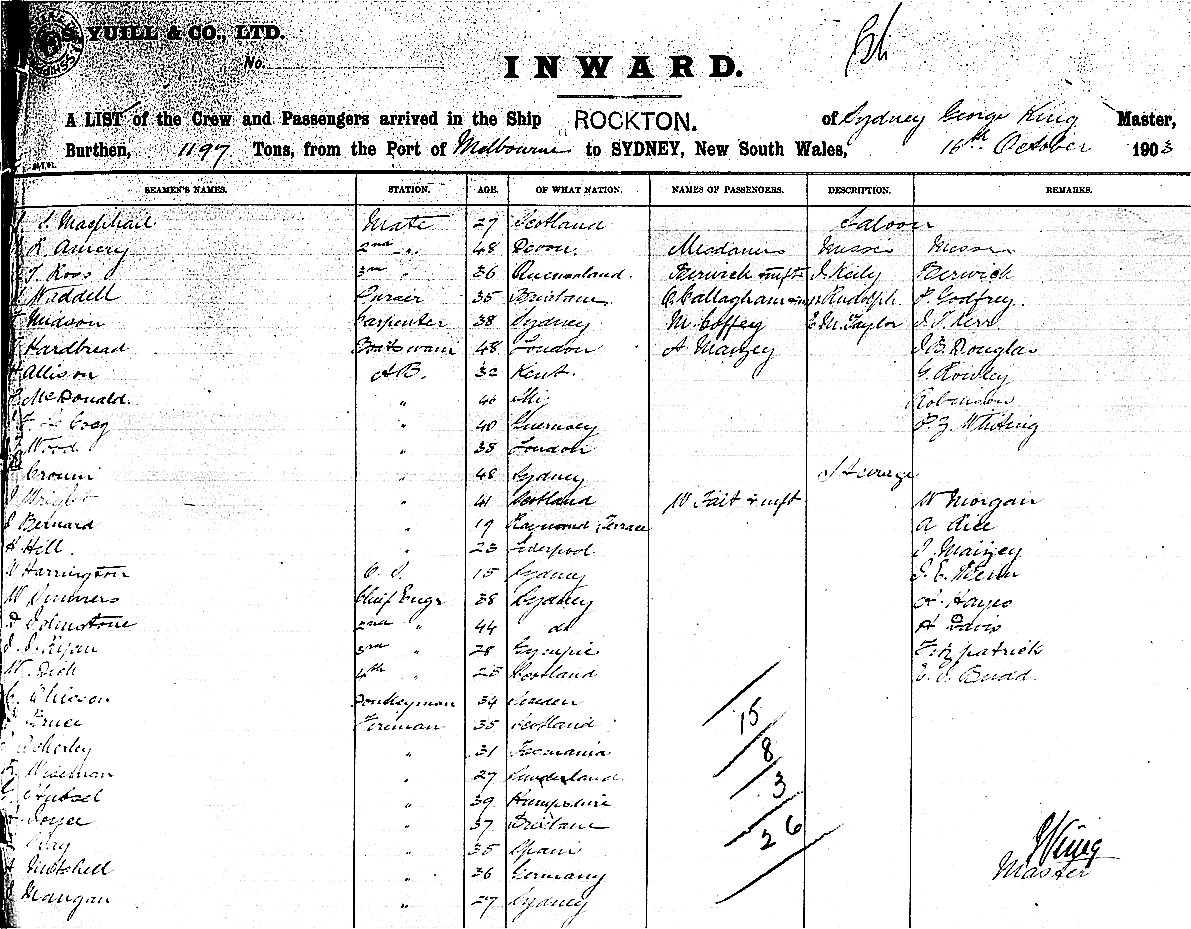 YUILL & CO., LTD.
No.
INWARD.
A LIST of the Crew and Passengers arrived in the Ship ROCKTON. of Sydney George King Master,
Burthen, 1197 Tons, from the Port of Melbourne to SYDNEY, New South Wales, 16th October 1903
SEAMEN'S NAMES. STATION. AGE. OF WHAT NATION. NAMES OF PASSENGERS. DESCRIPTION. REMARKS.
Macphail Mate 27 Scotland Saloon
R. Amery 2nd " 48 Devon. Mesdames Misses Messrs
T. Ross 3rd " 36 Queensland. Berwick & inft J. Keily Berwick
Waddell Purser 35 Brisbane. O'Callaghan Rudolph P. Godfrey.
Hudson Carpenter 38 Sydney M. Coffey E M. Taylor J. T. Kerr
Hardbread Boatswain 48 London A Manzey Douglas
Allison A B. Kent. G. Rowley
McDonald. " Robinson
" 40 Guernsey Whiting
Wood " 38 London
Cronin " 48 Sydney Steerage
Wright " 41 Scotland W Tait & inft W Morgan
J Bernard " 19 Raymond Terrace A Rice
H Hill. " 23 Liverpool. J. Mainzey
W Harrington O. S. 15 Sydney
W Simmers Chief Engr 38 Sydney Hayes
Johnstone 2nd " 44 do H Davis
J. J. Ryan 3rd " 28 Gympie Fitzpatrick
W. Dick 4th " 25 Scotland Budd.
Donkeyman 34 Sweden
Bruce Fireman 35 Scotland 15
" 31 Tasmania 8
Wiseman " 27 Sunderland 3
" 39 Hampshire
Joyce " 37 Brisbane 26
" 35 Spain King
Mitchell " 36 Germany Master
Mangan " 27 Sydney